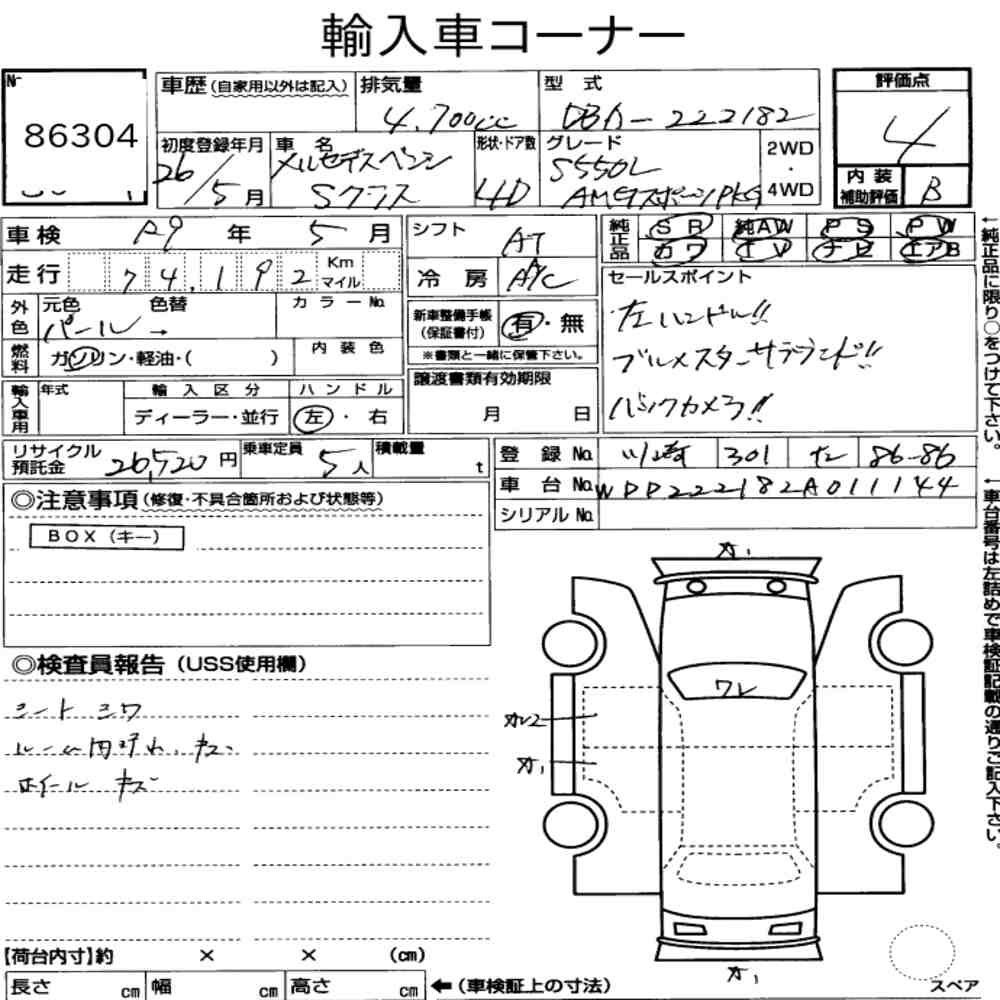 輸入車コーナー
No.
86304
車歴 (自家用以外は記入)
排気量
4,700cc
型 式
DBA-222182
評価点
4
初度登録年月
26/5月
車 名
メルセデスベンツ
Sクラス
形状・ドア数
4D
グレード
S550L
AMGスポーツPKG
2WD
・
4WD
内 装
補助評価
B
車検 R9 年 5 月
シフト
AT
純正品
SR 純AW PS PW
カワ TV ナビ エアB
走行 74,192 Km
マイル
冷 房 A/C
セールスポイント
左ハンドル!!
ブルメスターサラウンド!!
バックカメラ!!
外色
元色 色替
パール →
カラーNo.
新車整備手帳
(保証書付)
有・無
※書類と一緒に保管下さい。
燃料
ガソリン・軽油・( )
内 装 色
輸入車用
年式
輸 入 区 分
ディーラー・並行
ハ ン ド ル
左 ・ 右
譲渡書類有効期限
月 日
リサイクル
預託金
26,520 円
乗車定員
5人
積載量
t
登 録 No. 川崎 301 86-86
車 台 No. WDD222182A011144
シリアル No.
◎注意事項 (修復・不具合箇所および状態等)
BOX (キー)
◎検査員報告 (USS使用欄)
シートシワ
ルーム内 キズ
ホイール キズ
A1
ワレ
A1
A1
【荷台内寸】約 × × (cm)
長さ cm 幅 cm 高さ cm
←(車検証上の寸法)
スペア
←純正品に限り○をつけて下さい。
←車台番号は左詰めで車検証記載の通りご記入下さい。